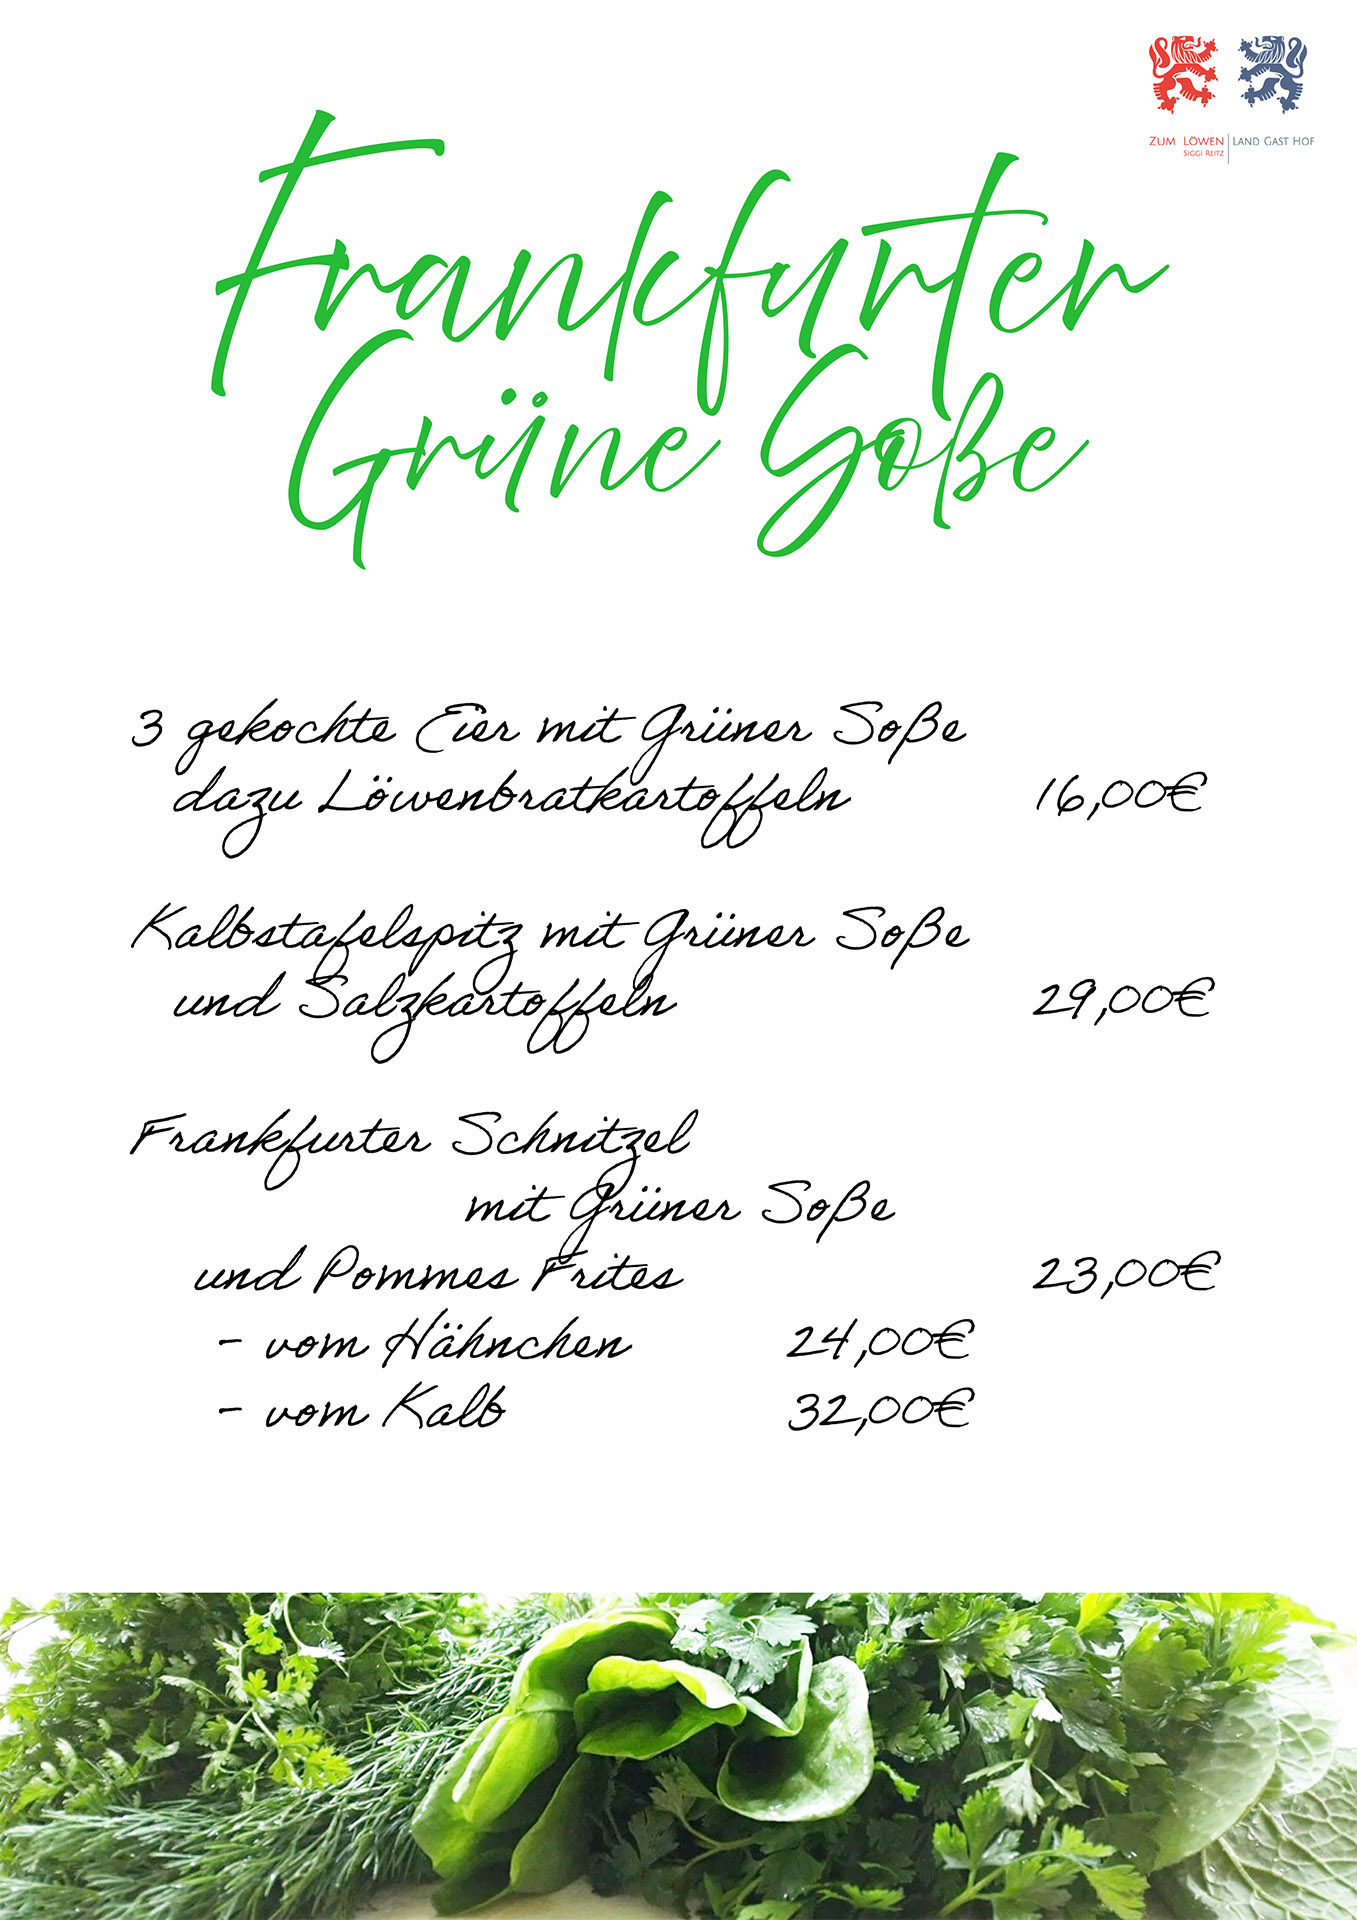 ZUM LÖWEN LAND GAST HOF
SIGGI REITZ
Frankfurter
Grüne Soße
3 gekochte Eier mit Grüner Soße
dazu Löwenbratkartoffeln 16,00€
Kalbstafelspitz mit Grüner Soße
und Salzkartoffeln 29,00€
Frankfurter Schnitzel
mit Grüner Soße
und Pommes Frites 23,00€
- vom Hähnchen 24,00€
- vom Kalb 32,00€